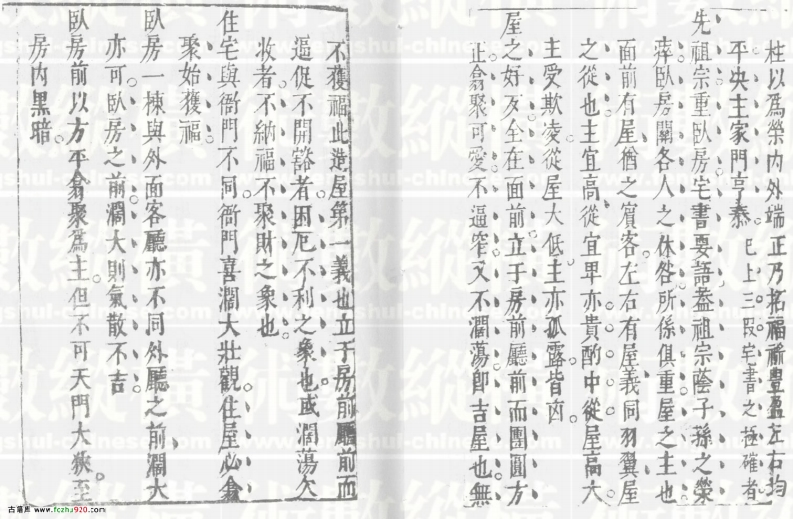 柱以爲榮內外端正乃招福祿豐盈左右均
平央主家門亨泰 已上三段宅書之極確者
先祖宗重臥房宅書要語蓋祖宗蔭子孫之榮
瘁臥房關各人之休咎所係俱重屋之主也
面前有屋猶之賓客左右有屋義同羽翼屋
之從也主宜高從宜卑亦貴酌中從屋高大
主受欺凌從屋大低主亦孤露皆凶
屋之好歹全在面前立于房前廳前而團圓方
正翕聚可愛不逼窄又不濶蕩即吉屋也無
不獲福此造屋第一義也立于房前廳前而
逼促不開豁者困厄不利之象也或濶蕩欠
收者不納福不聚財之象也
住宅與衙門不同衙門喜濶大壯觀住屋必翕
聚始獲福
臥房一棟與外面客廳亦不同外廳之前濶大
亦可臥房之前濶大則氣散不吉
臥房前以方平翕聚爲主但不可天門大狹至
房內黑暗
古籍庫 www.fczhu920.com